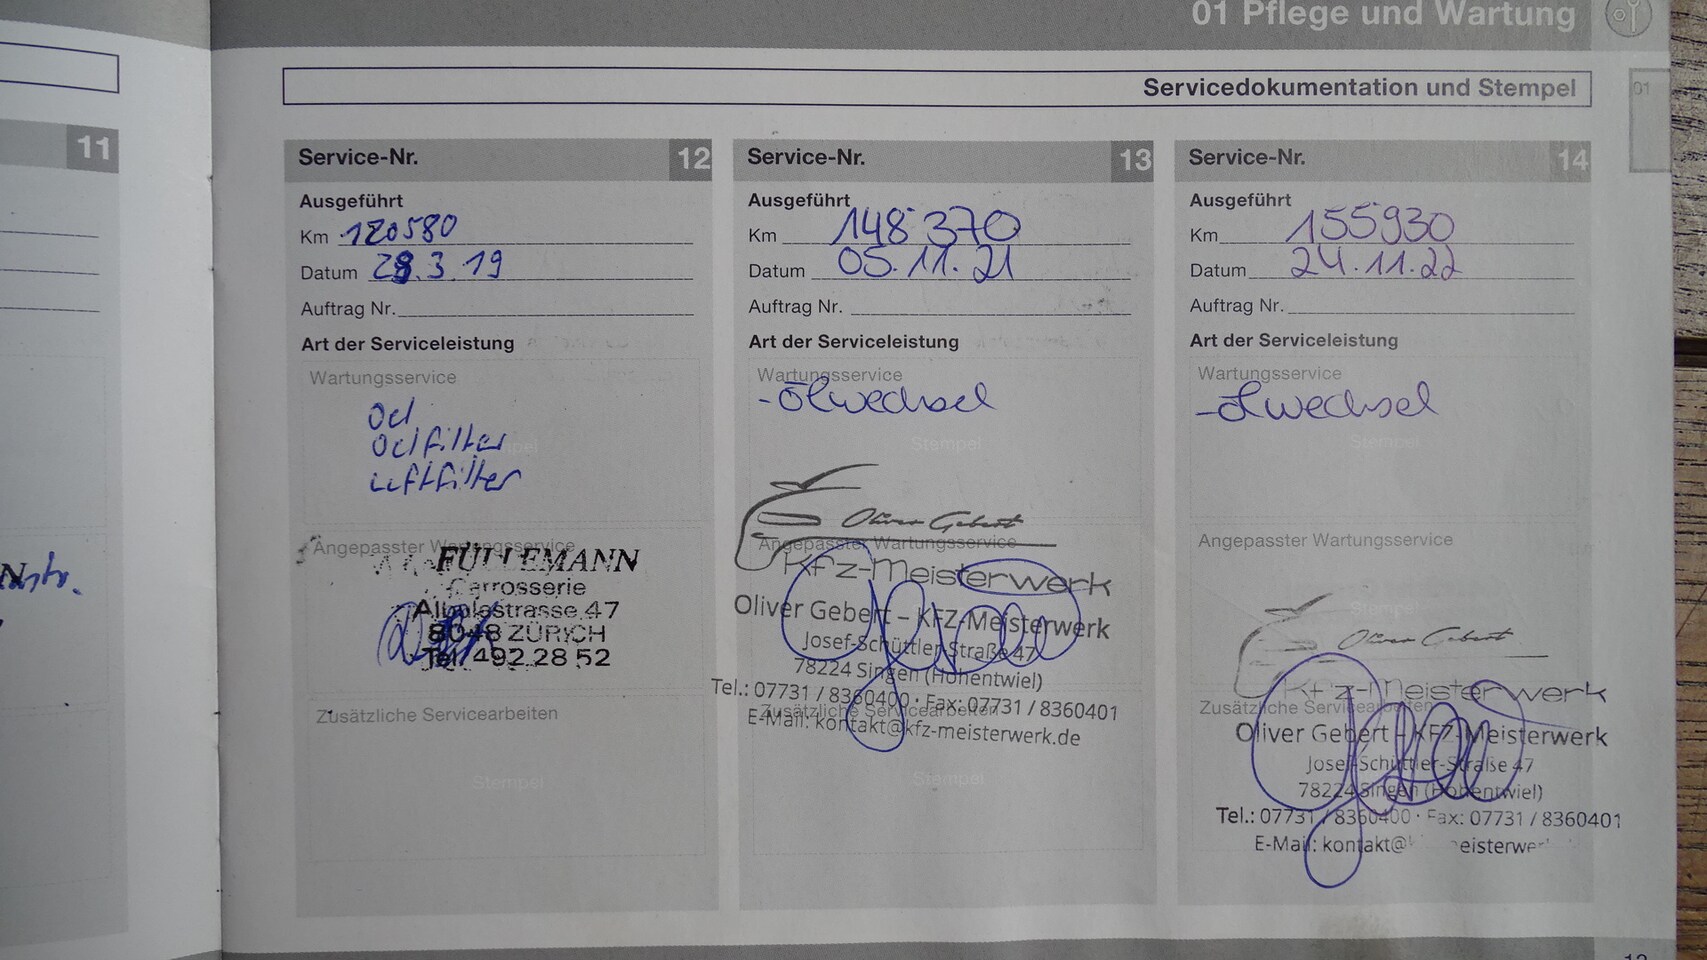 01 Pflege und Wartung
Servicedokumentation und Stempel
01
11
Service-Nr. 12
Ausgeführt
Km 120580
Datum 28.3.19
Auftrag Nr.
Art der Serviceleistung
Wartungsservice
Oel
Oelfilter
Luftfilter
Angepasster Wartungsservice
FÜLLEMANN
Carrosserie
Albulastrasse 47
8048 ZÜRICH
Tel. 492 28 52
Zusätzliche Servicearbeiten
Stempel
Service-Nr. 13
Ausgeführt
Km 148370
Datum 05.11.21
Auftrag Nr.
Art der Serviceleistung
Wartungsservice
-Ölwechsel
Stempel
Oliver Gebert
Angepasster Wartungsservice
Kfz-Meisterwerk
Oliver Gebert – KFZ-Meisterwerk
Josef-Schüttler-Straße 47
78224 Singen (Hohentwiel)
Tel.: 07731 / 8360400 · Fax: 07731 / 8360401
Zusätzliche Servicearbeiten
E-Mail: kontakt@kfz-meisterwerk.de
Stempel
Service-Nr. 14
Ausgeführt
Km 155930
Datum 24.11.22
Auftrag Nr.
Art der Serviceleistung
Wartungsservice
-Ölwechsel
Stempel
Angepasster Wartungsservice
Stempel
Oliver Gebert
Kfz-Meisterwerk
Zusätzliche Servicearbeiten
Oliver Gebert – KFZ-Meisterwerk
Josef-Schüttler-Straße 47
78224 Singen (Hohentwiel)
Tel.: 07731 / 8360400 · Fax: 07731 / 8360401
E-Mail: kontakt@ eisterwer